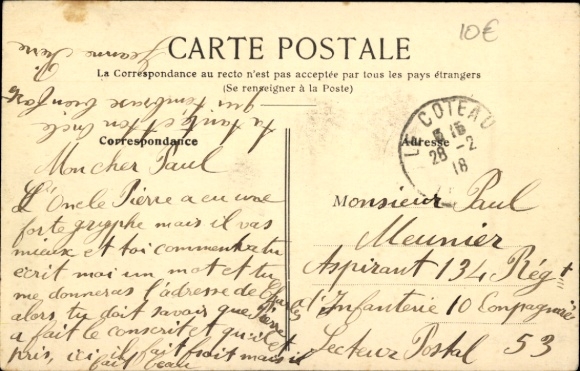 10€
CARTE POSTALE
La Correspondance au recto n'est pas acceptée par tous les pays étrangers
(Se renseigner à la Poste)
Correspondance
Adresse
LE COTEAU
28-2
18
Mon cher Paul
L'Oncle Pierre a eu une
forte gryphe mais il vas
mieux et toi comment vatu
écrit moi un mot et tu
me donneras l'adresse de Charles
alors tu doit savoir que Pierre
a fait le conscrit et qu'il est
pris, ici il fait froit mais il
fait beau
ta tante et ton oncle
qui t'embrasse bien fort
Jeanne Pierre
Monsieur Paul
Meunier
Aspirant 134 Régt
d'Infanterie 10 Conpagnie
Secteur Postal 53